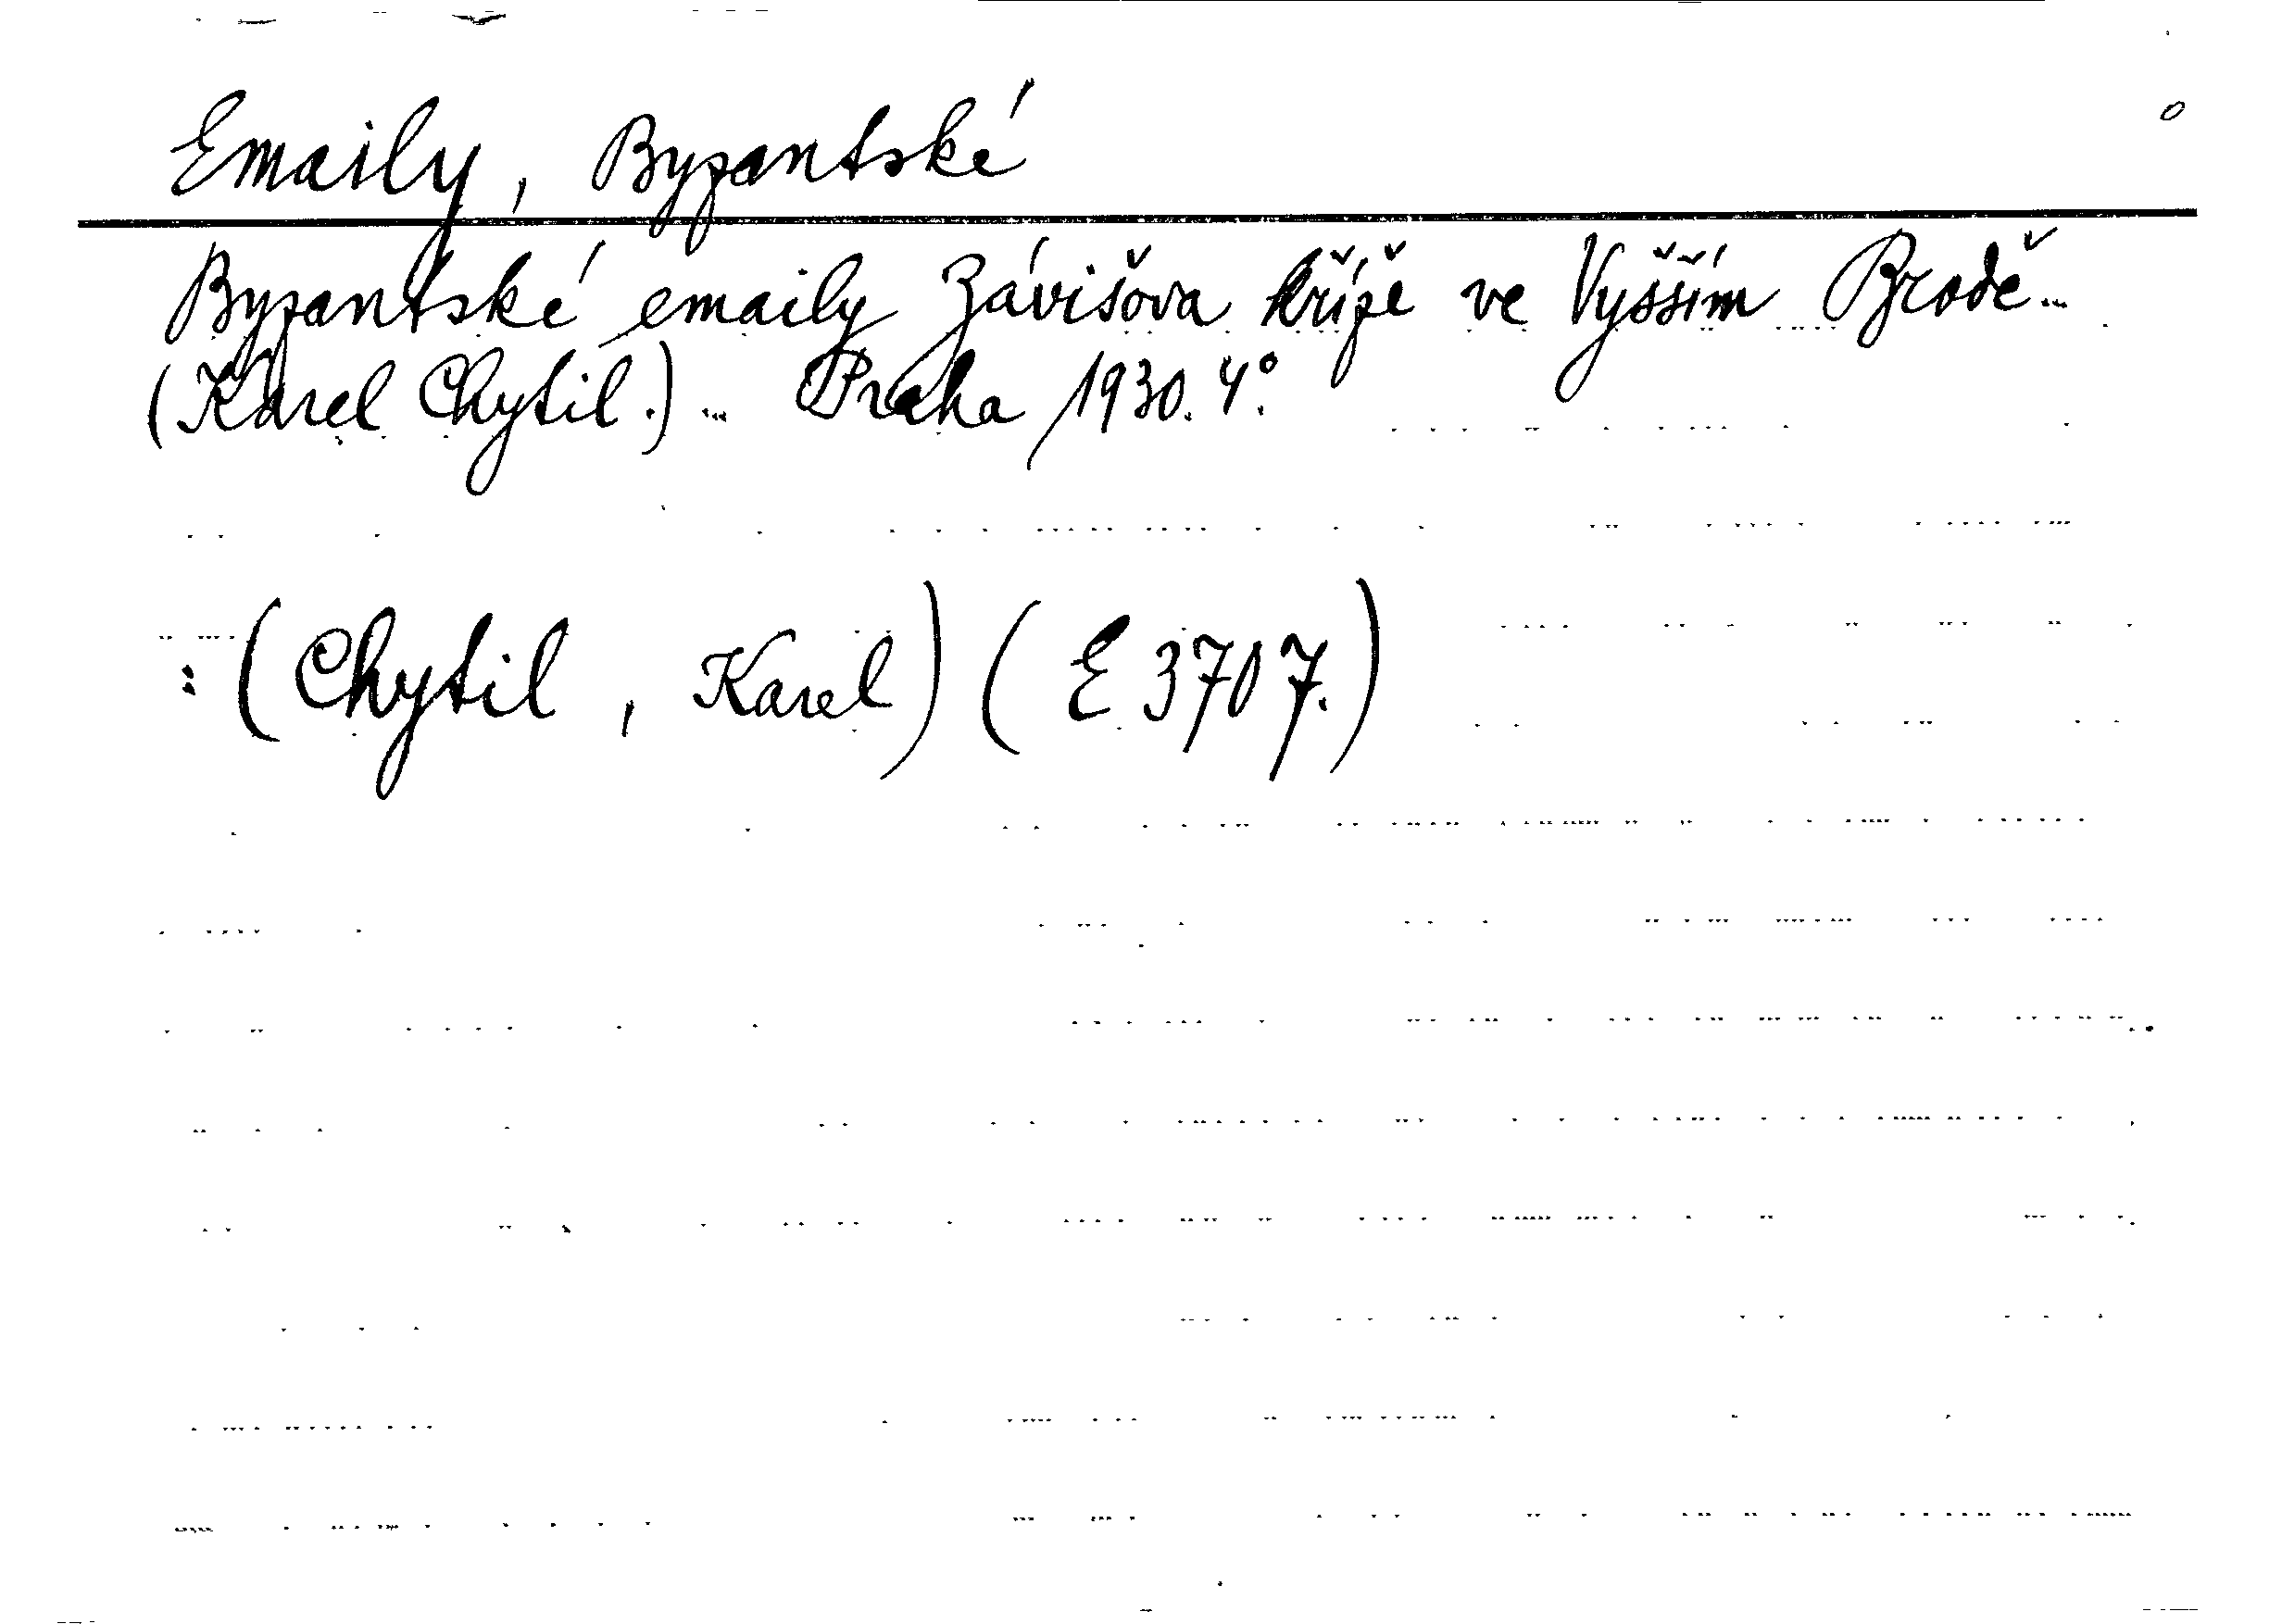 Emaily, Byzantské
Byzantské emaily Závišova kříže ve Vyšším Brodě...
(Karel Chytil.) ... Praha 1930. 4°.
: (Chytil, Karel) (E 3707.)